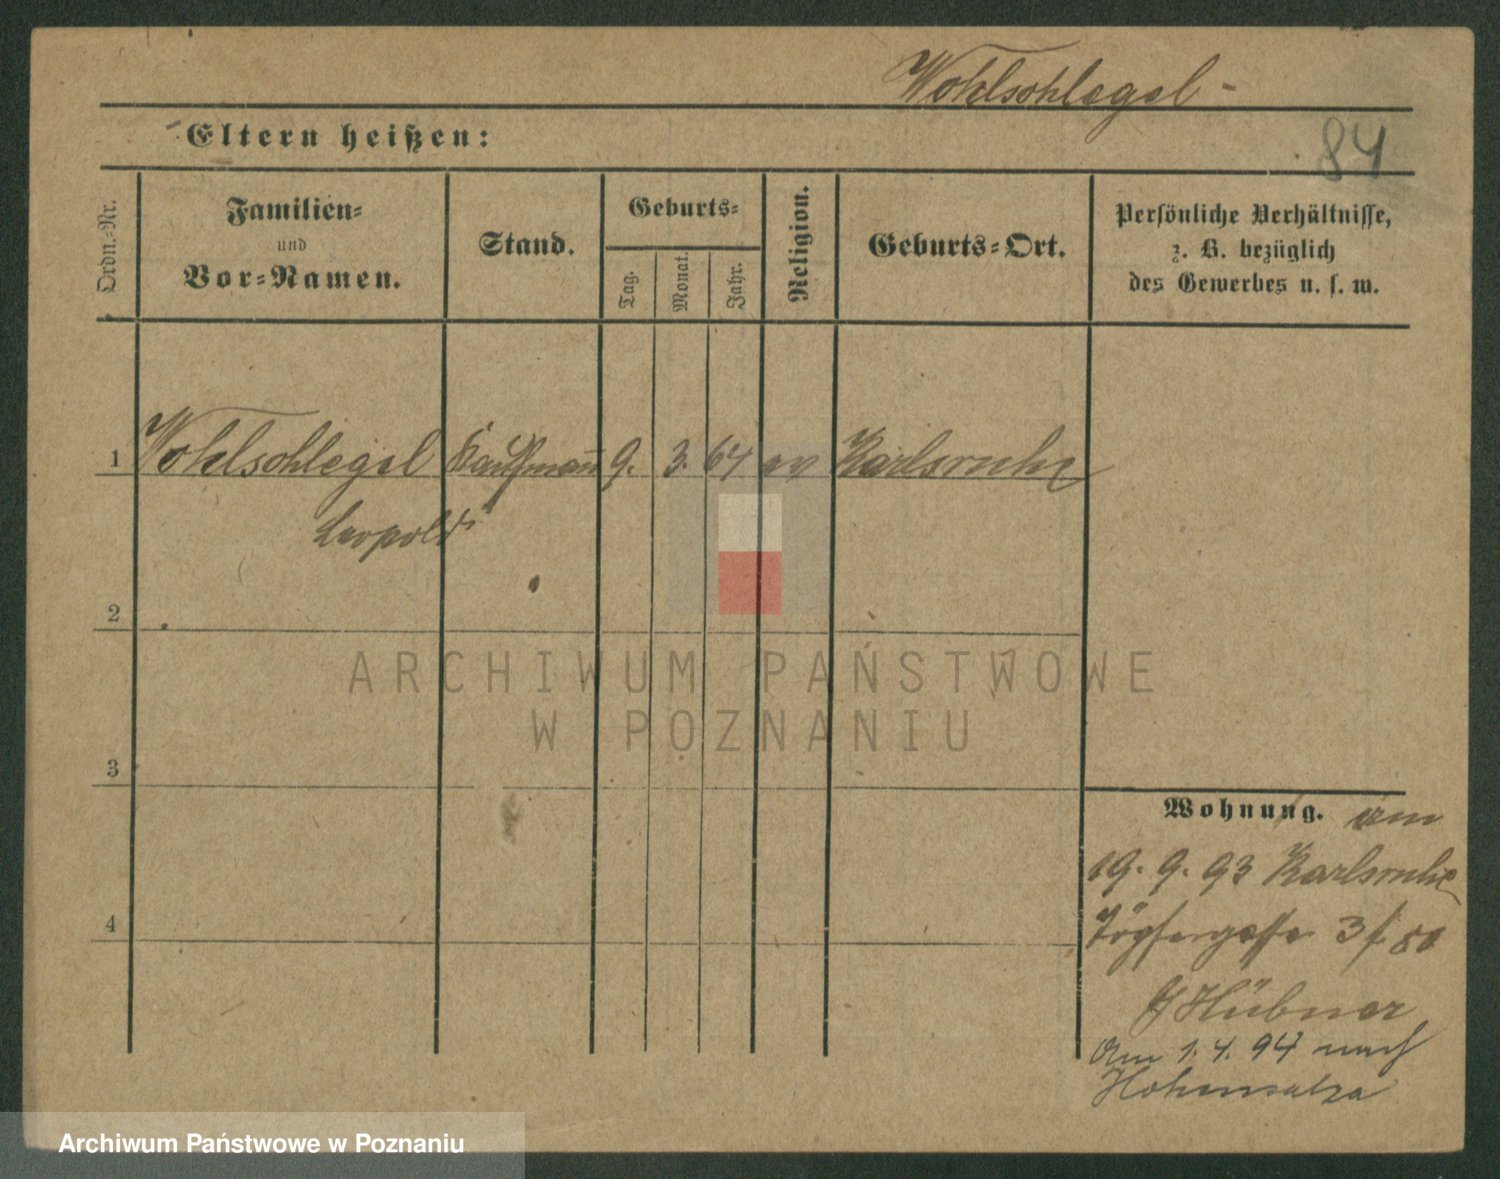 Wohlschlegel
84
Eltern heißen:
Ordn.-Nr.
Familien-
und
Vor-Namen.
Stand.
Geburts-
Tag.
Monat.
Jahr.
Religion.
Geburts-Ort.
Persönliche Verhältnisse,
z. B. bezüglich
des Gewerbes u. s. w.
1 Wohlschlegel Kaufmann 9. 3. 64 ev Karlsruhe
Leopold
2
3
4
ARCHIWUM PAŃSTWOWE
W POZNANIU
Wohnung. am
19. 9. 93 Karlsruhe
3
Hübner
Am 1. 4. 94 nach
Hohensalza
Archiwum Państwowe w Poznaniu